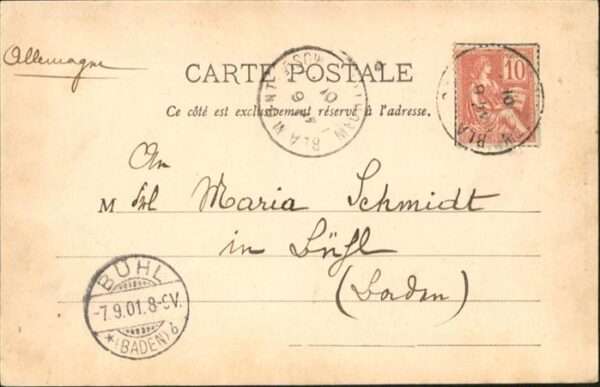 Allemagne
CARTE POSTALE
Ce côté est exclusivement réservé à l'adresse.
10
An
M Frl Maria Schmidt
in Bühl
(Baden)
BÜHL
-7.9.01.8-9V.
*(BADEN) b